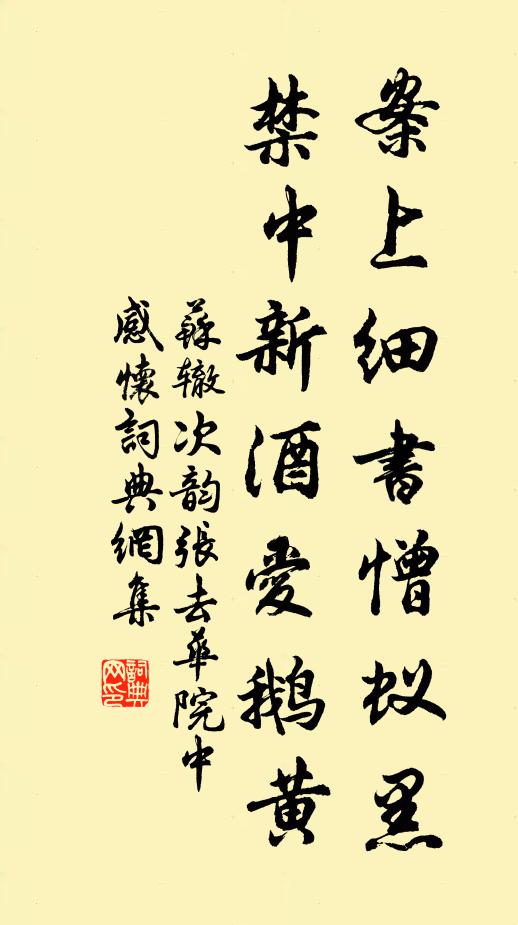 案上细書憎蚁黑
禁中新酒愛鹅黄
蘇辙次韵張去華院中
感懷詞典網集
詞典
网印